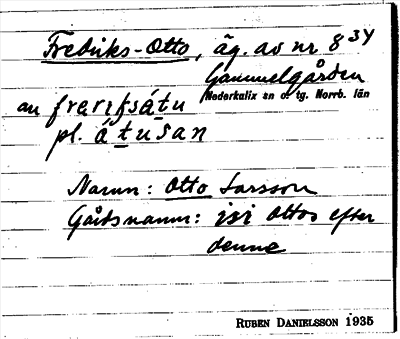 Fredriks-Otto, äg. av nr 8³⁴
Gammelgården
Nederkalix sn o. tg. Norrb. län
an frerıksátu
pl. átusan
Namn: Otto Larsson
Gårdsnamn: isi Ottos efter
denne
RUBEN DANIELSSON 1935